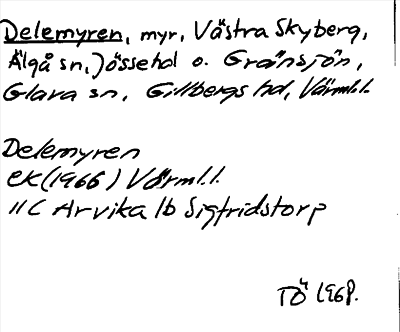 Delemyren, myr, Västra Skyberg,
Älgå sn, Jössehd o. Gränsjön,
Glava sn, Gillbergs hd, Värml.l.
Delemyren
ek (1966) Värml.l.
11C Arvika 1b Sigfridstorp
TÖ 1968.